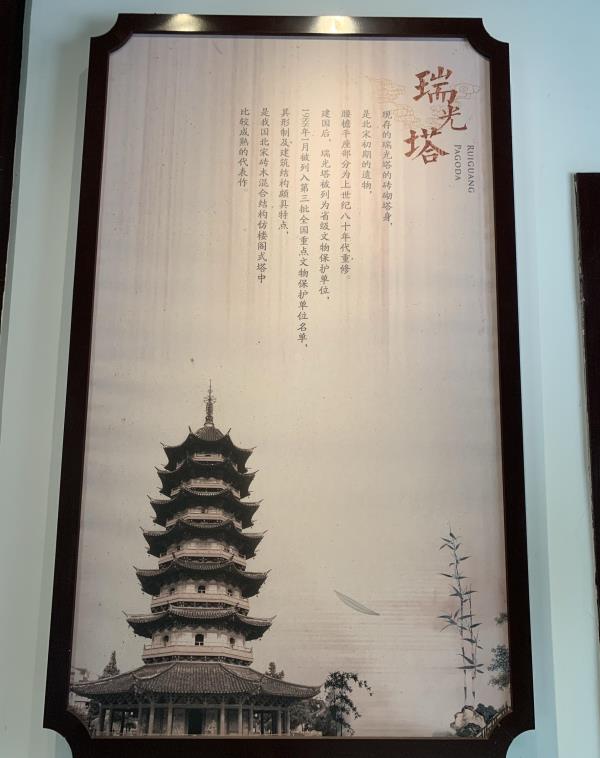 瑞光塔
RUIGUANG
PAGODA
现存的瑞光塔的砖砌塔身，
是北宋初期的遗物，
腰檐平座部分为上世纪八十年代重修。
建国后，瑞光塔被列为省级文物保护单位，
1988年1月被列入第三批全国重点文物保护单位名单，
其形制及建筑结构颇具特点，
是我国北宋砖木混合结构仿楼阁式塔中
比较成熟的代表作。